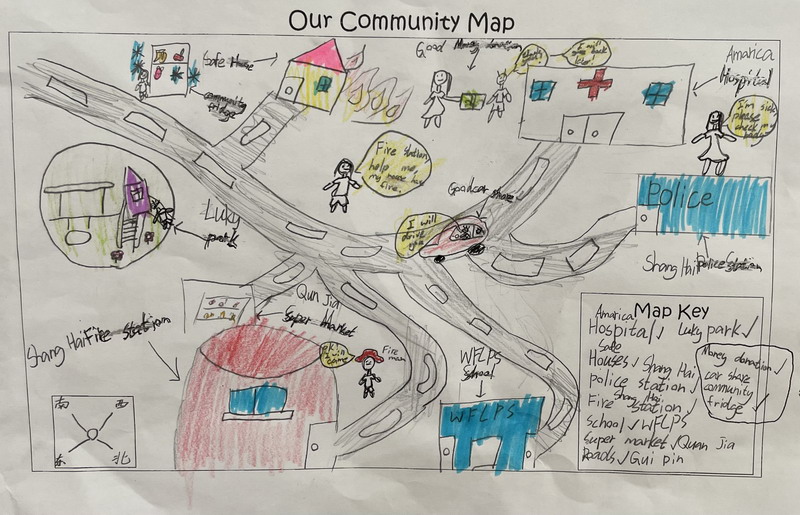 Our Community Map
Good Money donation
I will give back later!
Amarica
Hospital
Safe House
community
fridge
I'm sick,
please
check my
Fire station,
help me,
my house has
fire.
Police
Good car share
I will
drive you
Luky
park
Shang Hai Police Station
Qun Jia
Super Market
Shang Hai Fire station
OK!
I will
come
Fire
man
WFLPS
school
WFLPS
南 西
东 北
Map Key
Amarica
Hospital✓ Luky park✓
Safe
Houses✓ Shang Hai
police station✓
Shang Hai
Fire station✓
School✓WFLPS
Super market✓Quan Jia
Roads✓Gui pin
Money donation✓
car share
community
fridge✓